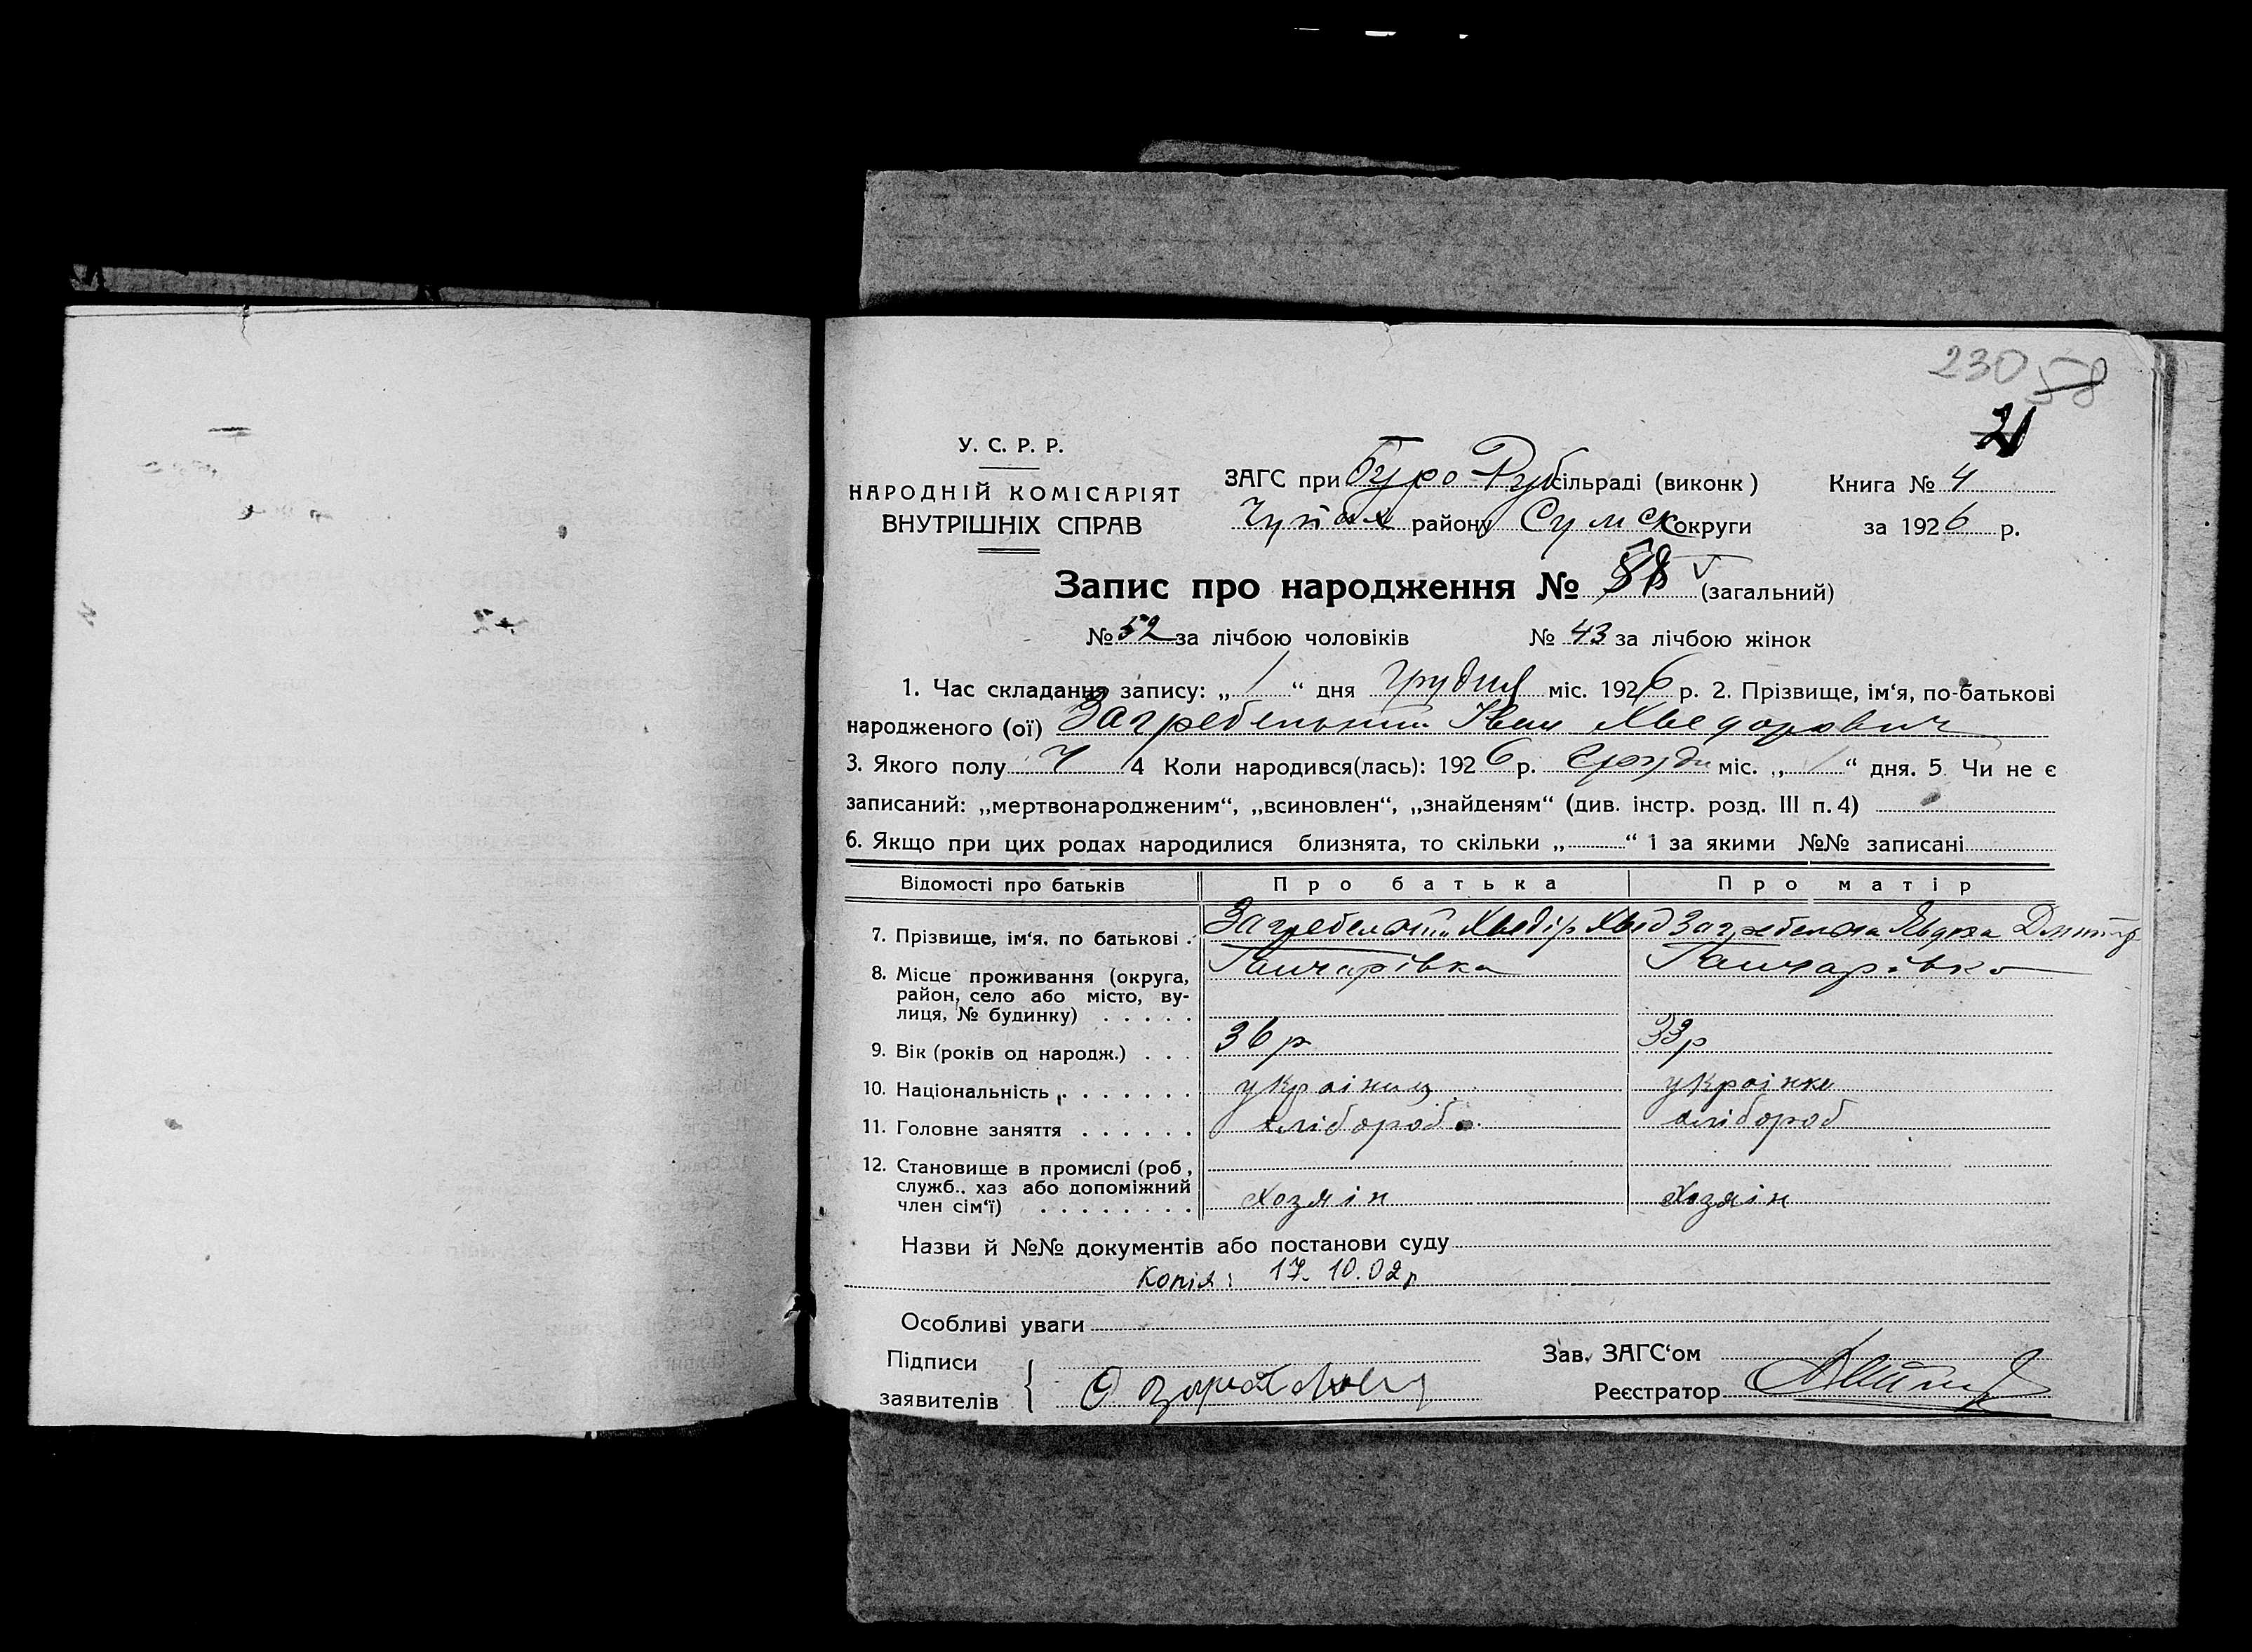 230 58
21
У. С. Р. Р.
НАРОДНІЙ КОМІСАРІЯТ
ВНУТРІШНІХ СПРАВ
ЗАГС при Буро-Руб сільраді (виконк)
району Сумск округи
Книга № 4
за 1926 р.
Запис про народження № (загальний)
№ 52 за лічбою чоловіків № 43 за лічбою жінок
1. Час складання запису: „1“ дня грудня міс. 1926 р. 2. Прізвище, ім‘я, по-батькові
народженого (ої) Загребельний Іван Хведорович
3. Якого полу Ч 4 Коли народився(лась): 1926 р. міс. „1“ дня. 5 Чи не є
записаний: „мертвонародженим“, „всиновлен“, „знайденям“ (див. інстр. розд. III п. 4)
6. Якщо при цих родах народилися близнята, то скільки „ “ і за якими №№ записані
Відомості про батьків Про батька Про матір
7. Прізвище, ім‘я, по батькові . Загребельний Хведір Хвед Загребельна Явдоха Дмитр
8. Місце проживання (округа, Ганчарівка Ганчарівка
район, село або місто, ву-
лиця, № будинку) . . . . .
9. Вік (років од народж.) . . . 36 р 33 р
10. Національність . . . . . . . україниц українка
11. Головне заняття . . . . . . хлібороб хлібороб
12. Становище в промислі (роб,
служб., хаз або допоміжний хозяін хозяін
член сім‘ї) . . . . . . . .
Назви й №№ документів або постанови суду
Копія: 17.10.02р
Особливі уваги
Підписи
заявителів
Зав. ЗАГС‘ом
Реєстратор